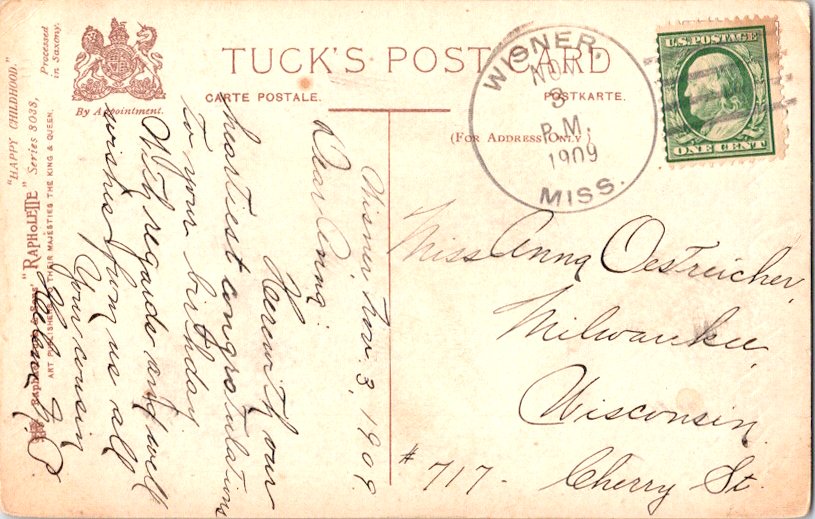 TUCK'S POST CARD
CARTE POSTALE.
POSTKARTE.
(FOR ADDRESS ONLY
By Appointment.
"HAPPY CHILDHOOD."
Processed
in Saxony.
"RAPHOLETTE" Series 8038,
ART PUBLISHERS THEIR MAJESTIES THE KING & QUEEN.
WISNER,
NOV
3
P.M.
1909
MISS.
U.S. POSTAGE
ONE CENT
Wisner, Nov. 3, 1909.
Dear Anna:
Herewith our
heartiest congratulations
to your birthday
With regards and well
wishes from us all
Your cousin
Miss Anna Oestreicher,
Milwaukee,
Wisconsin.
#717. Cherry St.